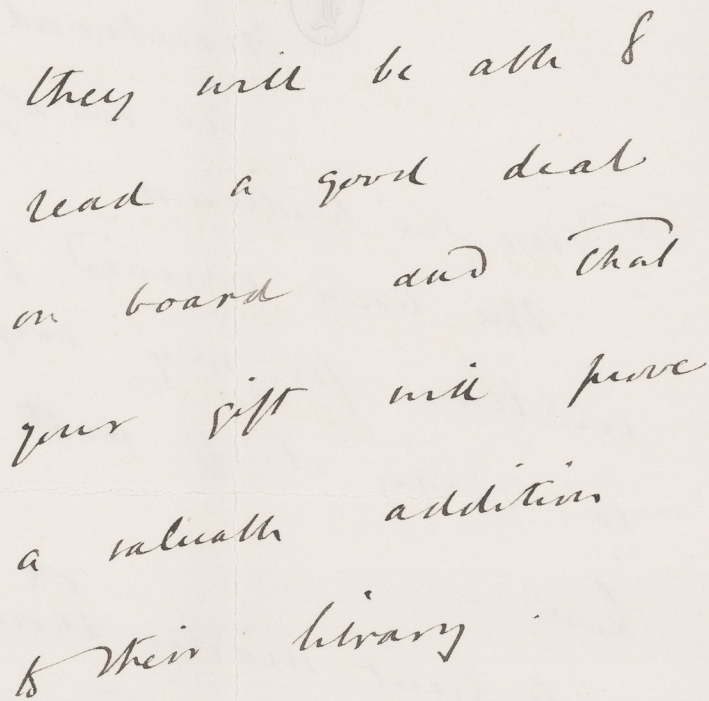 they will be able to
read a good deal
on board and that
your gift will prove
a valuable addition
to their library.